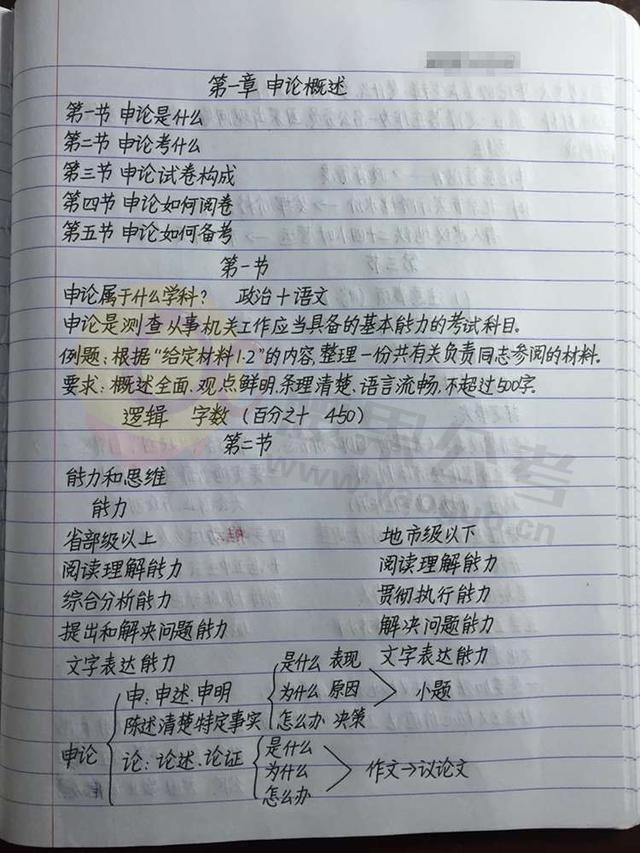 第一章 申论概述
第一节 申论是什么
第二节 申论考什么
第三节 申论试卷构成
第四节 申论如何阅卷
第五节 申论如何备考
第一节
申论属于什么学科? 政治+语文
申论是测查从事机关工作应当具备的基本能力的考试科目。
例题:根据“给定材料1.2”的内容,整理一份共有关负责同志参阅的材料。
要求:概述全面.观点鲜明.条理清楚.语言流畅.不超过500字.
逻辑 字数 (百分之十 450)
第二节
能力和思维
能力
省部级以上 地市级以下
阅读理解能力 阅读理解能力
综合分析能力 贯彻执行能力
提出和解决问题能力 解决问题能力
文字表达能力 文字表达能力
申论
申:申述.申明
陈述清楚特定事实
是什么 表现
为什么 原因
怎么办 决策
小题
论:论述.论证
是什么
为什么
怎么办
作文→议论文